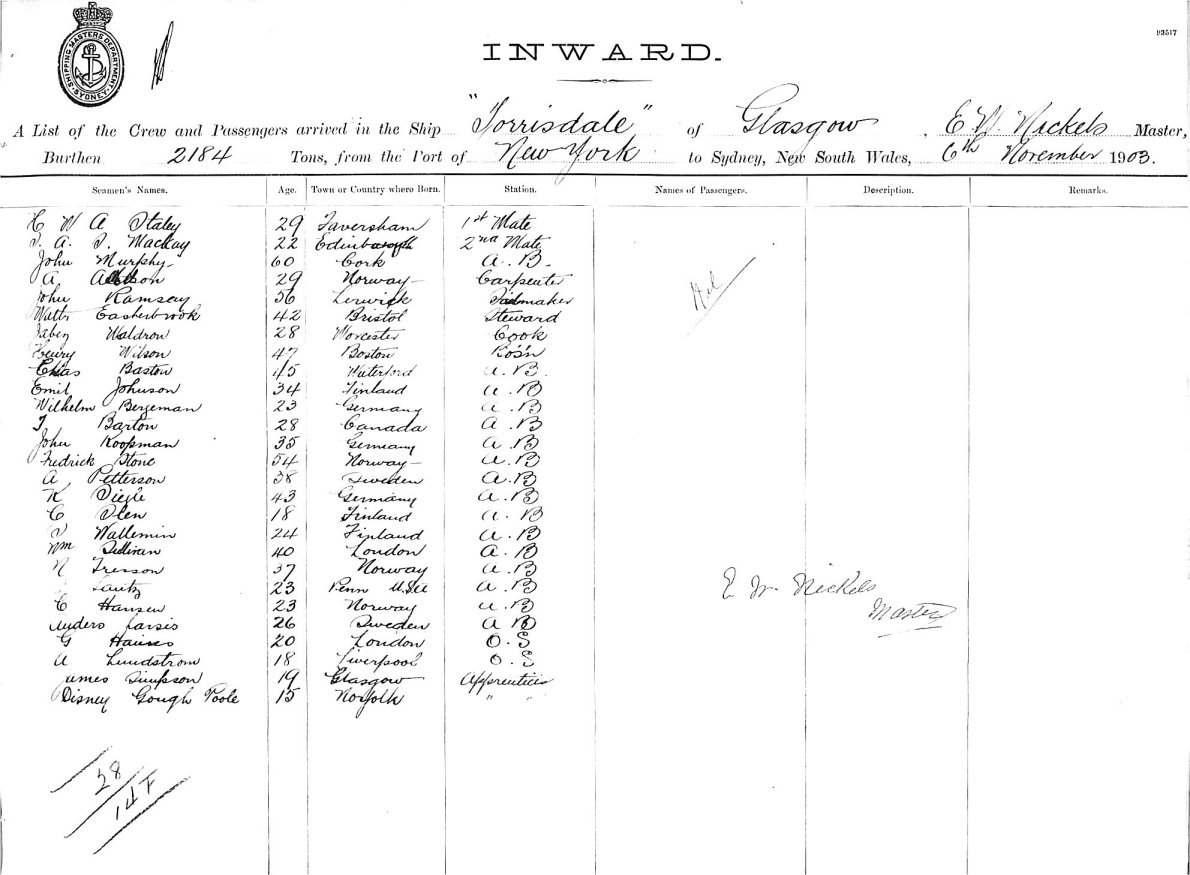 SHIPPING MASTERS DEPARTMENT. SYDNEY
93517
INWARD.
A List of the Crew and Passengers arrived in the Ship "Torrisdale" of Glasgow, E W Nickels Master,
Burthen 2184 Tons, from the Port of New York to Sydney, New South Wales, 6th November 1903.
Seamen's Names. Age. Town or Country where Born. Station. Names of Passengers. Description. Remarks.
H W A Staley 29 Faversham 1st Mate
A. Mackay 22 Edinburgh 2nd Mate
John Murphy 60 Cork A.B.
A 29 Norway Carpenter
John Ramsay 56 Lerwick Sailmaker
Nil
Watts Easherbrook 42 Bristol Steward
Jabez Waldron 28 Worcester Cook
Henry Wilson 47 Boston Bos'n
Chas Baston 45 Waterford A.B.
Emil Johnson 34 Finland A.B
Wilhelm Bergeman 23 Germany A.B
T Barton 28 Canada A.B
John Koopman 35 Germany A.B
Fredrick Stone 54 Norway A.B
A Petterson 38 Sweden A.B
K 43 Germany A.B
C Olen 18 Finland A.B
Wallemin 24 Finland A.B
Wm Sullivan 40 London A.B
N 37 Norway A.B
23 Penn A.B
E W Nickels
C Hansen 23 Norway A.B
Master
Anders 26 Sweden A B
G 20 London O.S
A Lundstrom 18 Liverpool O.S
James Simpson 19 Glasgow Apprentices
Disney Gough Poole 15 Norfolk " "
28
14 F